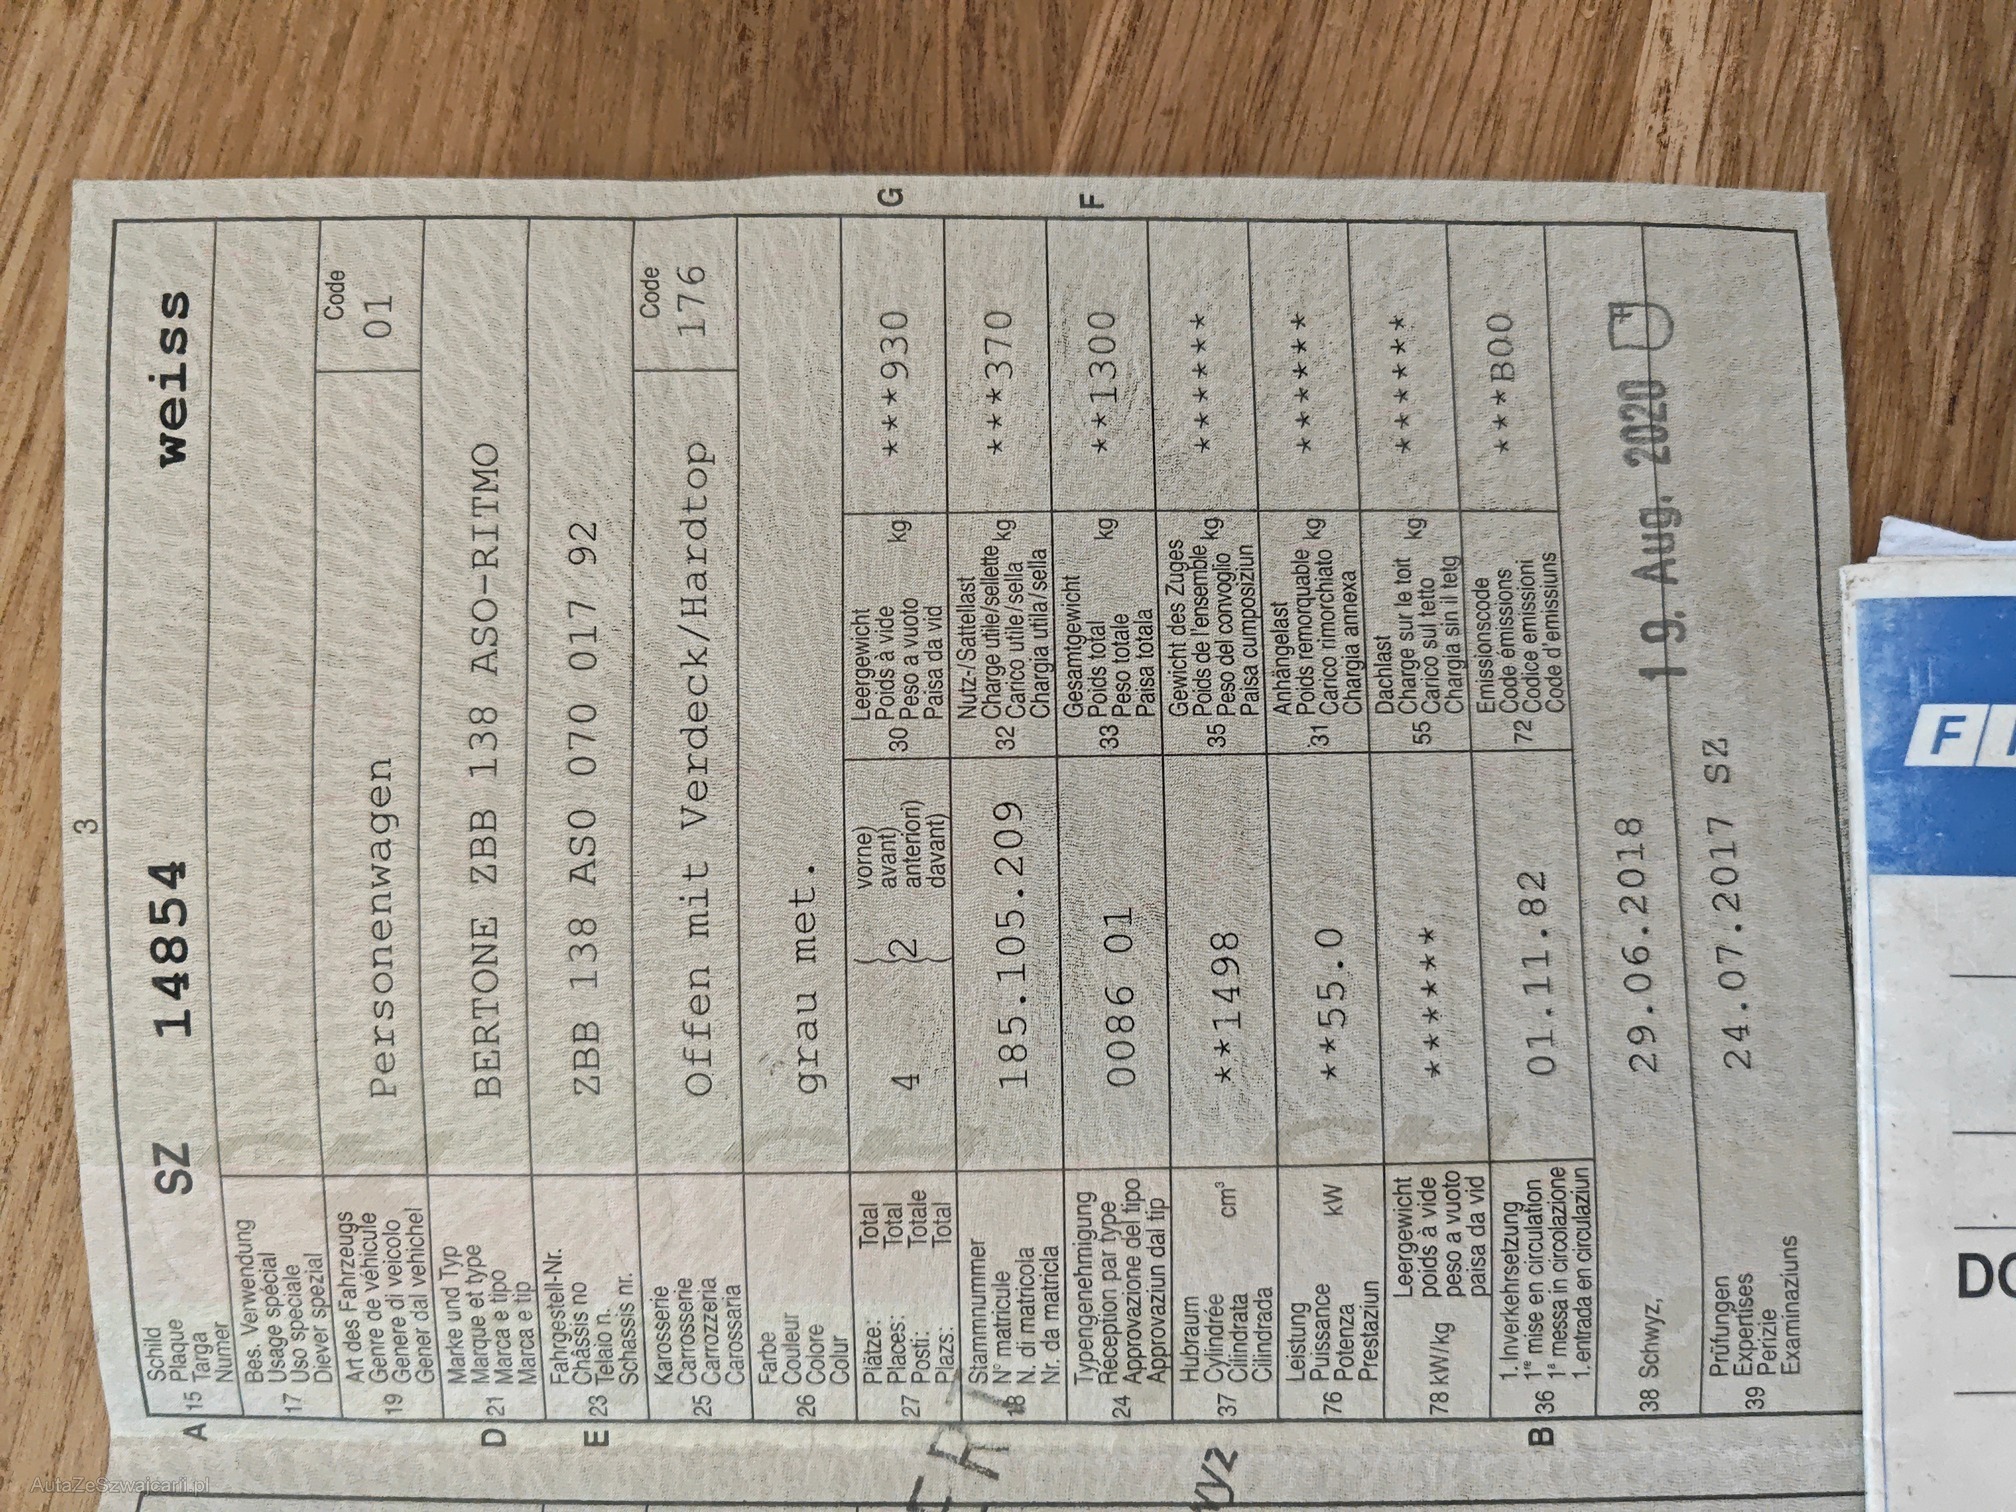 3
A 15 Schild
Plaque
Targa
Numer
SZ 14854 weiss
17 Bes. Verwendung
Usage spécial
Uso speciale
Diever spezial
19 Art des Fahrzeugs
Genre de véhicule
Genere di veicolo
Gener dal vehichel
Personenwagen
Code
01
D 21 Marke und Typ
Marque et type
Marca e tipo
Marca e tip
BERTONE ZBB 138 ASO-RITMO
E 23 Fahrgestell-Nr.
Châssis no
Telaio n.
Schassis nr.
ZBB 138 AS0 070 017 92
25 Karosserie
Carrosserie
Carrozzeria
Carossaria
Offen mit Verdeck/Hardtop
Code
176
26 Farbe
Couleur
Colore
Colur
grau met.
27 Plätze: Total
Places: Total
Posti: Totale
Plazs: Total
4 (2 vorne)
avant)
anteriori)
davant)
30 Leergewicht
Poids à vide
Peso a vuoto
Paisa da vid
kg ***930 G
18 Stammnummer
N° matricule
N. di matricola
Nr. da matricla
185.105.209
32 Nutz-/Sattellast
Charge utile/sellette
Carico utile/sella
Chargia utila/sella
kg ***370
24 Typengenehmigung
Réception par type
Approvazione del tipo
Approvaziun dal tip
0086 01
33 Gesamtgewicht
Poids total
Peso totale
Paisa totala
kg **1300 F
37 Hubraum
Cylindrée
Cilindrata
Cilindrada
cm³ **1498
35 Gewicht des Zuges
Poids de l'ensemble
Peso del convoglio
Paisa cumposiziun
kg *******
76 Leistung
Puissance
Potenza
Prestaziun
kW **55.0
31 Anhängelast
Poids remorquable
Carico rimorchiato
Chargia annexa
kg *******
78 kW/kg Leergewicht
poids à vide
peso a vuoto
paisa da vid
*******
55 Dachlast
Charge sur le toit
Carico sul tetto
Chargia sin il tetg
kg *******
B 36 1. Inverkehrsetzung
1re mise en circulation
1a messa in circolazione
1. entrada en circulaziun
01.11.82
72 Emissionscode
Code émissions
Codice emissioni
Code d'emissiuns
***B00
38 Schwyz, 29.06.2018
19. Aug. 2020
39 Prüfungen
Expertises
Perizie
Examinaziuns
24.07.2017 SZ
F
DO
AutaZeSzwajcarii.pl